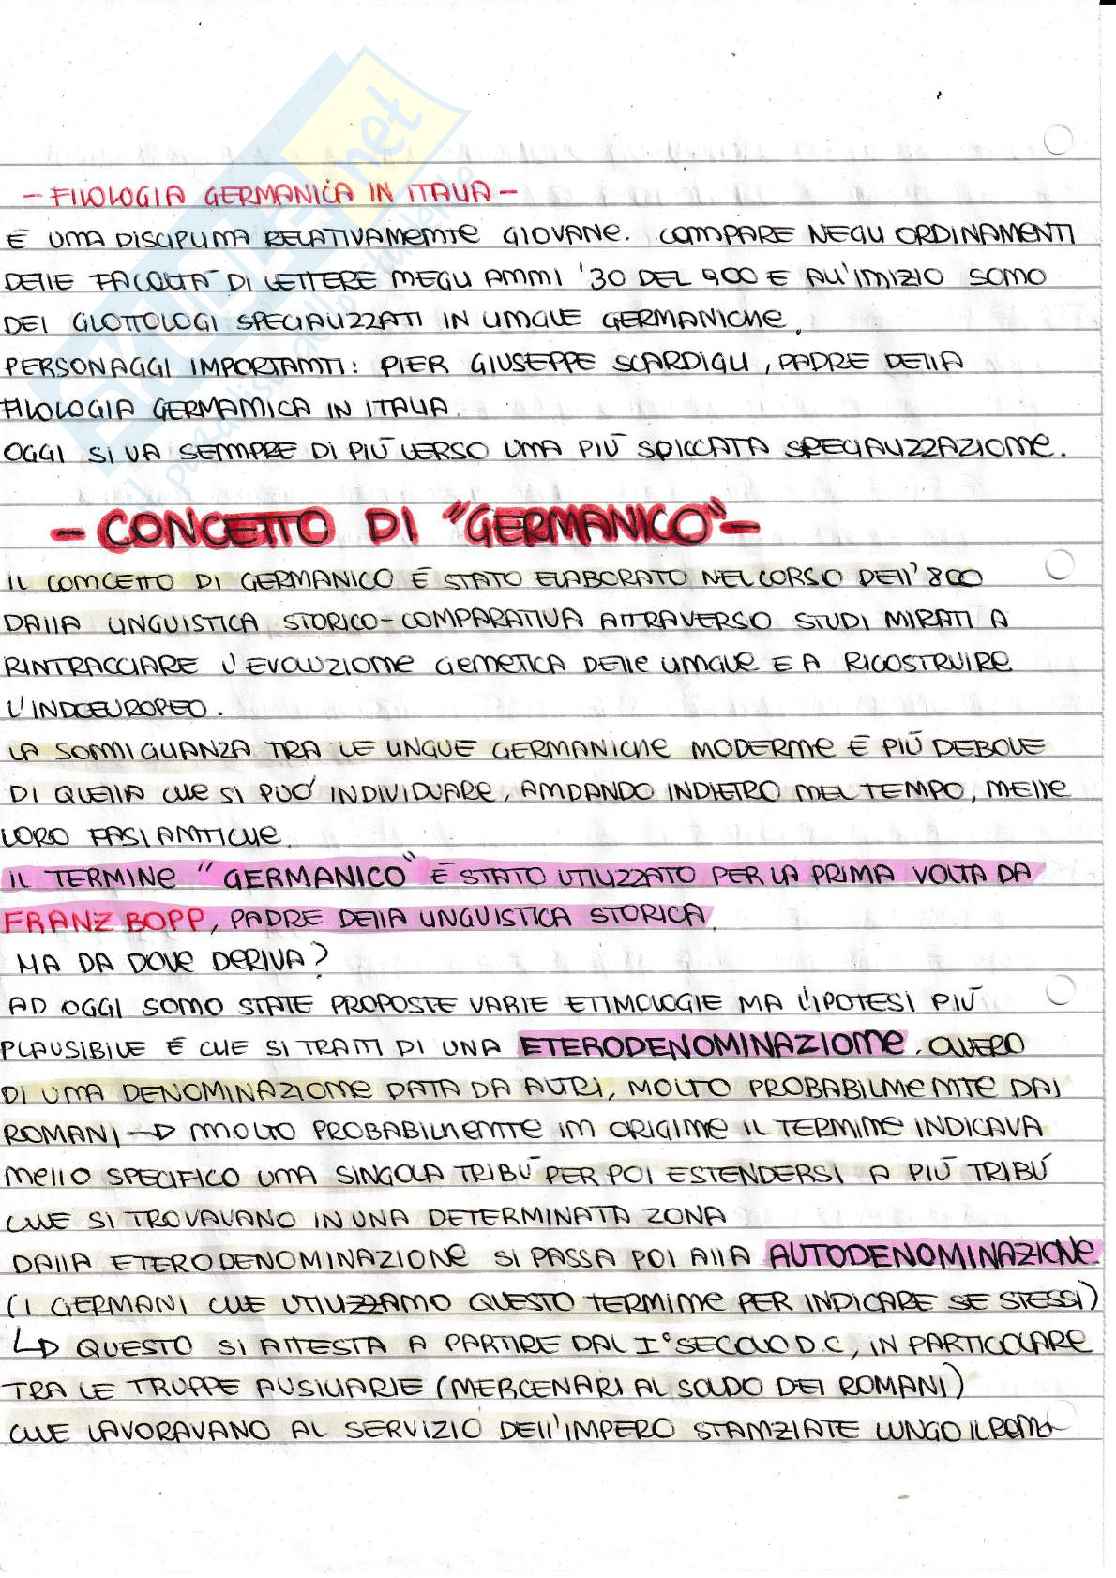 - FILOLOGIA GERMANICA IN ITALIA -
È UNA DISCIPLINA RELATIVAMENTE GIOVANE. COMPARE NEGLI ORDINAMENTI
DELLE FACOLTÀ DI LETTERE NEGLI ANNI '30 DEL 900 E ALL'INIZIO SONO
DEI GLOTTOLOGI SPECIALIZZATI IN LINGUE GERMANICHE.
PERSONAGGI IMPORTANTI: PIER GIUSEPPE SCARDIGLI, PADRE DELLA
FILOLOGIA GERMANICA IN ITALIA.
OGGI SI VA SEMPRE DI PIÙ VERSO UNA PIÙ SPICCATA SPECIALIZZAZIONE.
- CONCETTO DI "GERMANICO" -
IL CONCETTO DI GERMANICO È STATO ELABORATO NEL CORSO DELL'800
DALLA LINGUISTICA STORICO-COMPARATIVA ATTRAVERSO STUDI MIRATI A
RINTRACCIARE L'EVOLUZIONE GENETICA DELLE LINGUE E A RICOSTRUIRE
L'INDOEUROPEO.
LA SOMIGLIANZA TRA LE LINGUE GERMANICHE MODERNE È PIÙ DEBOLE
DI QUELLA CHE SI PUÓ INDIVIDUARE, ANDANDO INDIETRO NEL TEMPO, NELLE
LORO FASI ANTICHE.
IL TERMINE "GERMANICO" È STATO UTILIZZATO PER LA PRIMA VOLTA DA
FRANZ BOPP, PADRE DELLA LINGUISTICA STORICA.
MA DA DOVE DERIVA?
AD OGGI SONO STATE PROPOSTE VARIE ETIMOLOGIE MA L'IPOTESI PIÙ
PLAUSIBILE È CHE SI TRATTI DI UNA ETERODENOMINAZIONE, OVVERO
DI UNA DENOMINAZIONE DATA DA ALTRI, MOLTO PROBABILMENTE DAI
ROMANI → MOLTO PROBABILMENTE IN ORIGINE IL TERMINE INDICAVA
NELLO SPECIFICO UNA SINGOLA TRIBÙ PER POI ESTENDERSI A PIÙ TRIBÙ
CHE SI TROVAVANO IN UNA DETERMINATA ZONA
DALLA ETERODENOMINAZIONE SI PASSA POI ALLA AUTODENOMINAZIONE
(I GERMANI CHE UTILIZZANO QUESTO TERMINE PER INDICARE SE STESSI)
↳ QUESTO SI ATTESTA A PARTIRE DAL I° SECOLO D.C, IN PARTICOLARE
TRA LE TRUPPE AUSILIARIE (MERCENARI AL SOLDO DEI ROMANI)
CHE LAVORAVANO AL SERVIZIO DELL'IMPERO STANZIATE LUNGO IL RENO